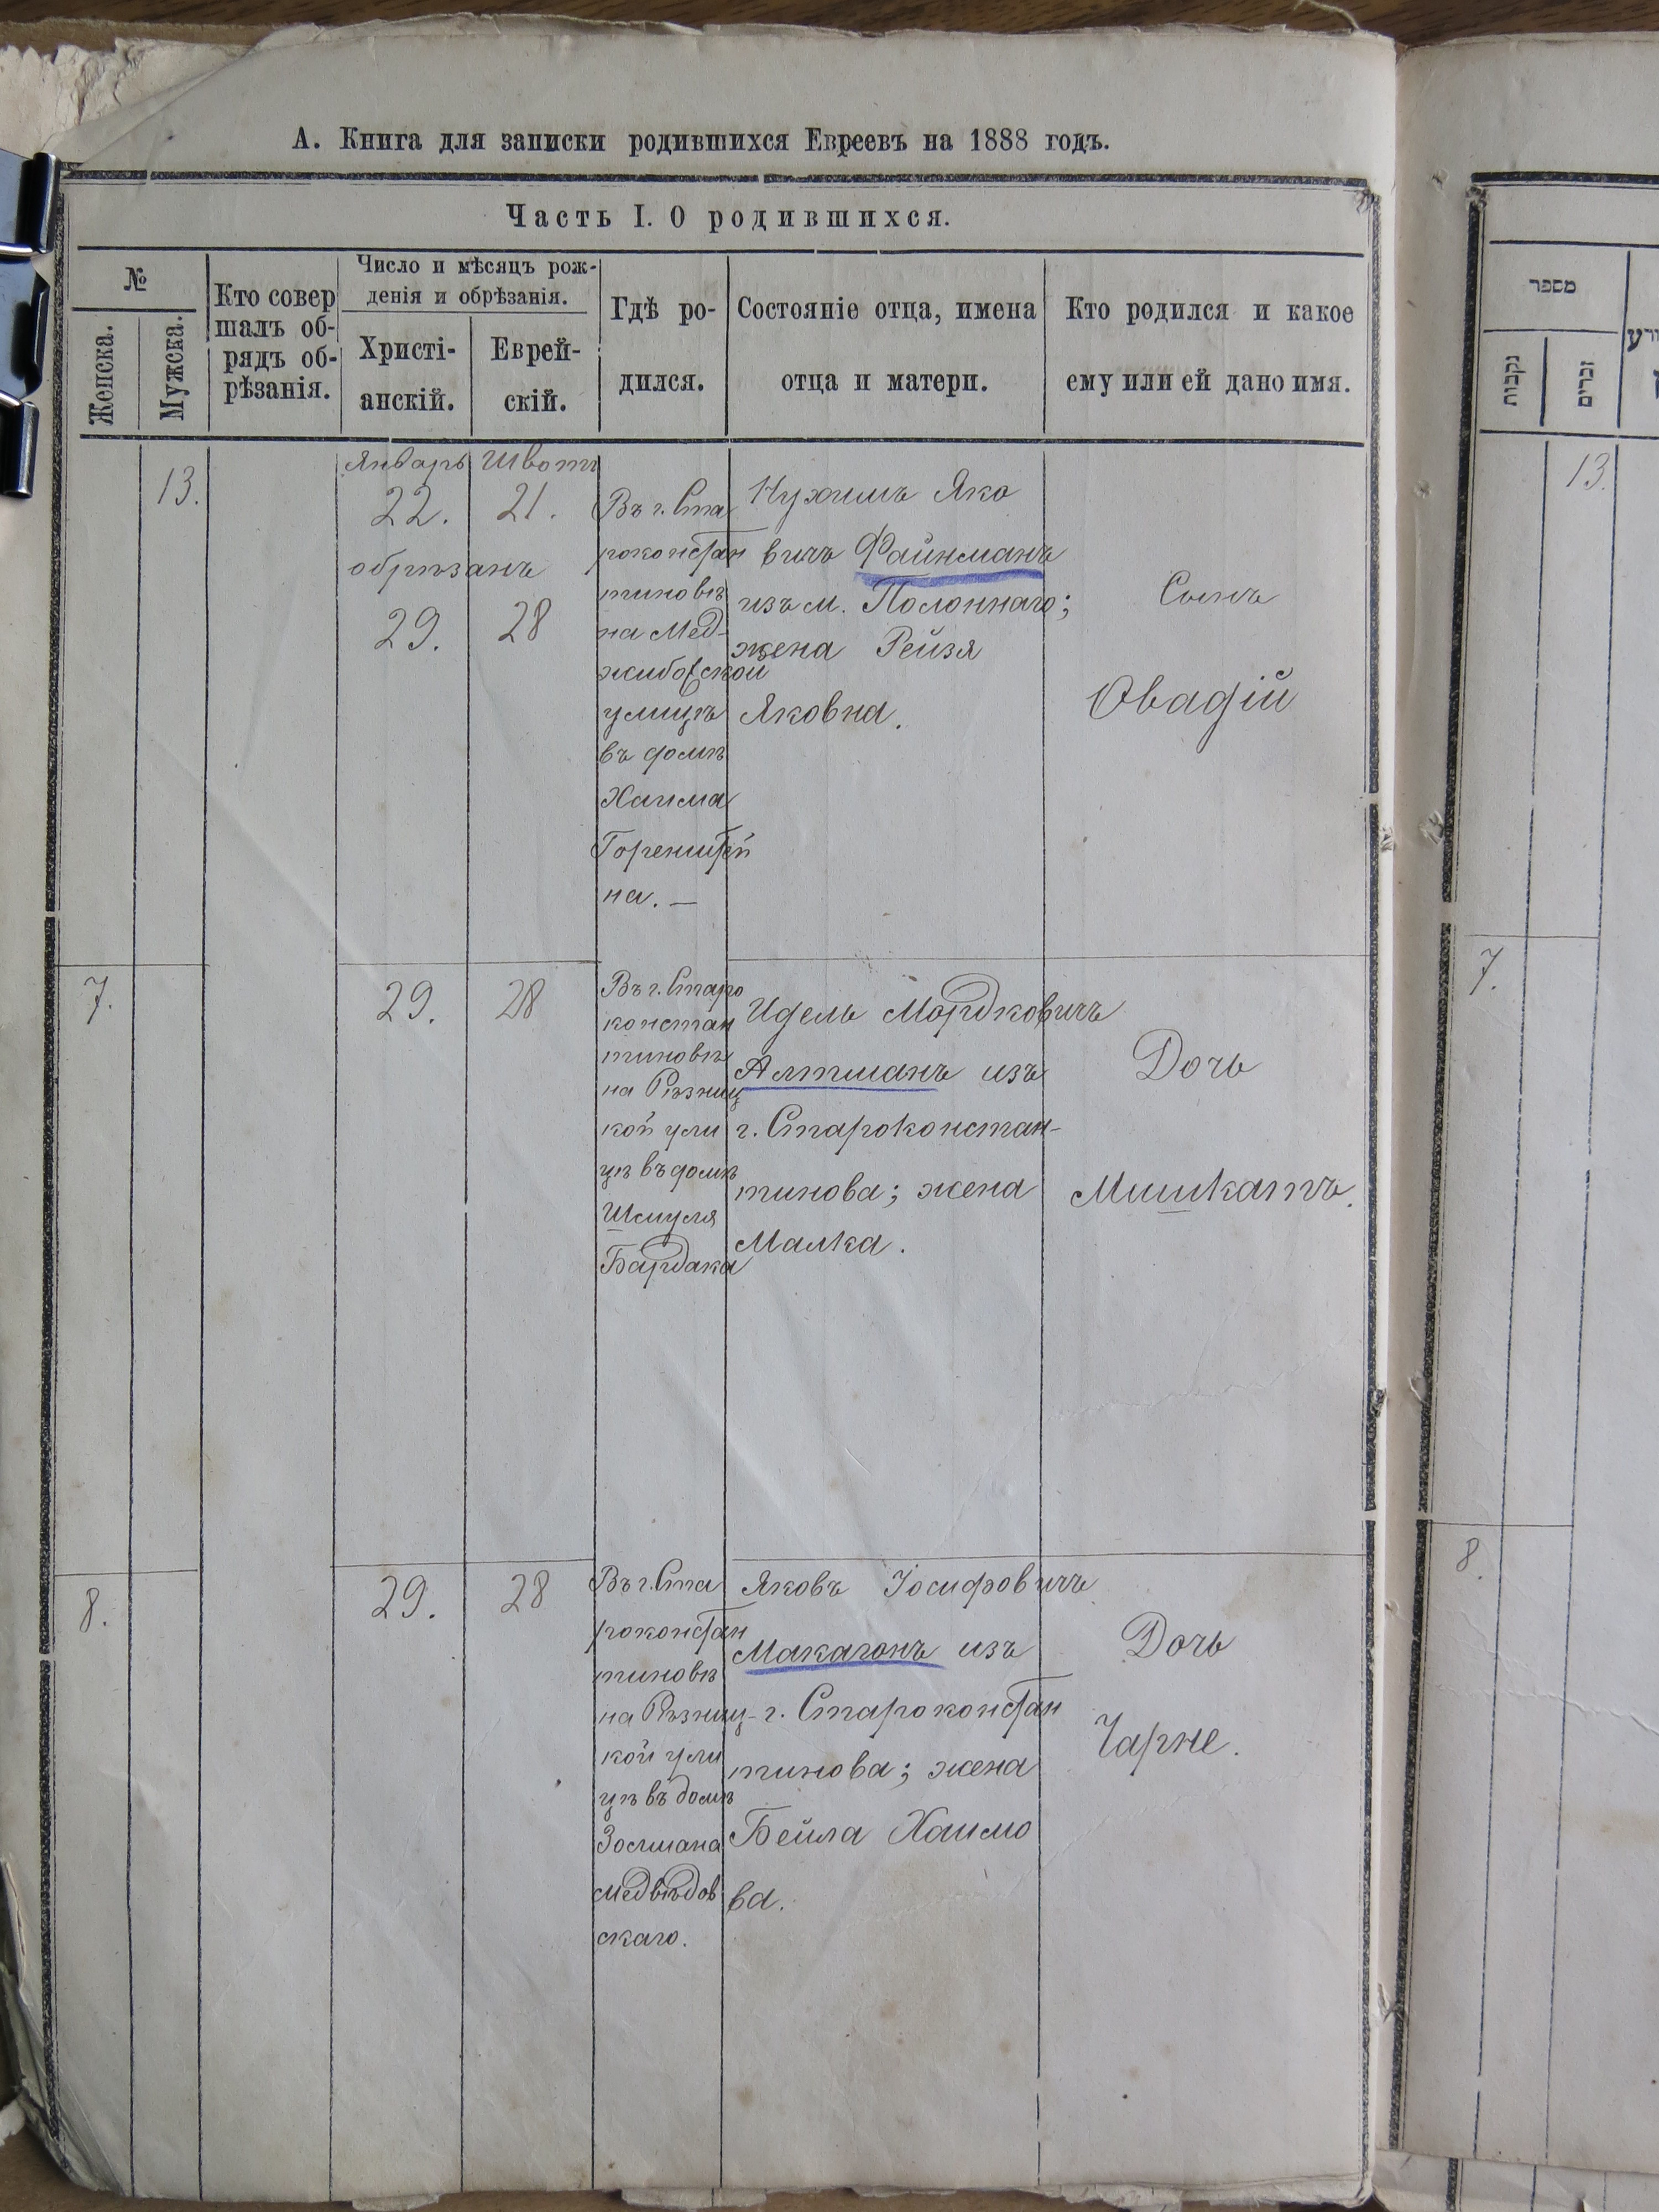 А. Книга для записки родившихся Евреевъ на 1888 годъ.
Часть I. О родившихся.
№
Женска.
Мужска.
Кто совер
шалъ об-
рядъ об-
рѣзанія.
Число и мѣсяцъ рож-
денія и обрѣзанія.
Христі-
анскій.
Еврей-
скій.
Гдѣ ро-
дился.
Состояніе отца, имена
отца и матери.
Кто родился и какое
ему или ей дано имя.
13.
Январь
22.
обрѣзанъ
29.
Швотъ
21.
28
Въ г. Ста
роконстан
тиновѣ
на Мед-
жибожской
улицѣ
въ домѣ
Хаима
Горенштей
на. —
Нухимъ Яко
вичъ Файнманъ
изъ м. Полоннаго;
жена Рейзя
Яковна.
Сынъ
Овадій
7.
29.
28
Въ г. Старо
констан
тиновѣ
на Рѣзниц
кой ули
цѣ въ домѣ
Шмуля
Бардака
Идель Мордковичъ
Алтманъ изъ
г. Староконстан-
тинова; жена
Малка.
Дочь
Мишкатъ.
8.
29.
28
Въ г. Ста
роконстан
тиновѣ
на Рѣзниц-
кой ули
цѣ въ домѣ
Зосмана
Медвѣдов
скаго.
Яковъ Іосифовичъ
Макагонъ изъ
г. Староконстан
тинова; жена
Бейла Хаимо
ва.
Дочь
Чарне.
מספר
נקבות
זכרים
13.
7.
8.